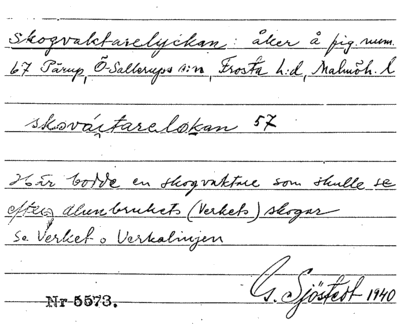 Skogvaktarelyckan: åker å fig. num.
67 Pärup, Ö-Sallerups s:n, Frosta h:d, Malmöh. l
skováctarelokan 57
Här bodde en skogvaktare som skulle se
efter alunbrukets (Verkets) skogar
se Verket o Verkalinjen
G. Sjöstedt 1940
Nr 5573.